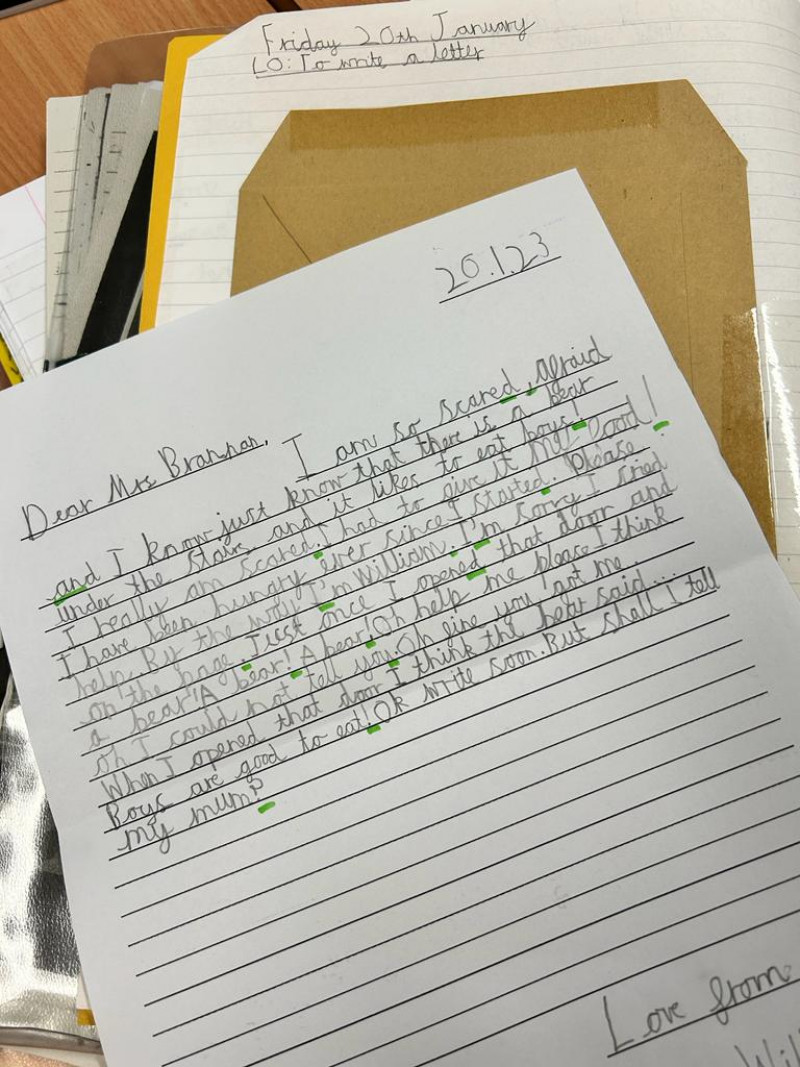 Friday 20th January
LO: To write a letter
20.1.23
Dear Mrs Brannan, I am so scared, afraid
and I know just know that there is a bear
under the stairs and it likes to eat boys!
I really am scared. I had to give it my food!
I have been hungry ever since I started. Please
help. By the way I'm William. I'm sorry I cried
on the page. Just once I opened that door and
a bear! A bear! A bear! Oh help me please I think
oh I could not tell you. Oh you not me.
When I opened that door I think the bear said...
Boys are good to eat! Ok write soon. But shall I tell
my mum?
Love from